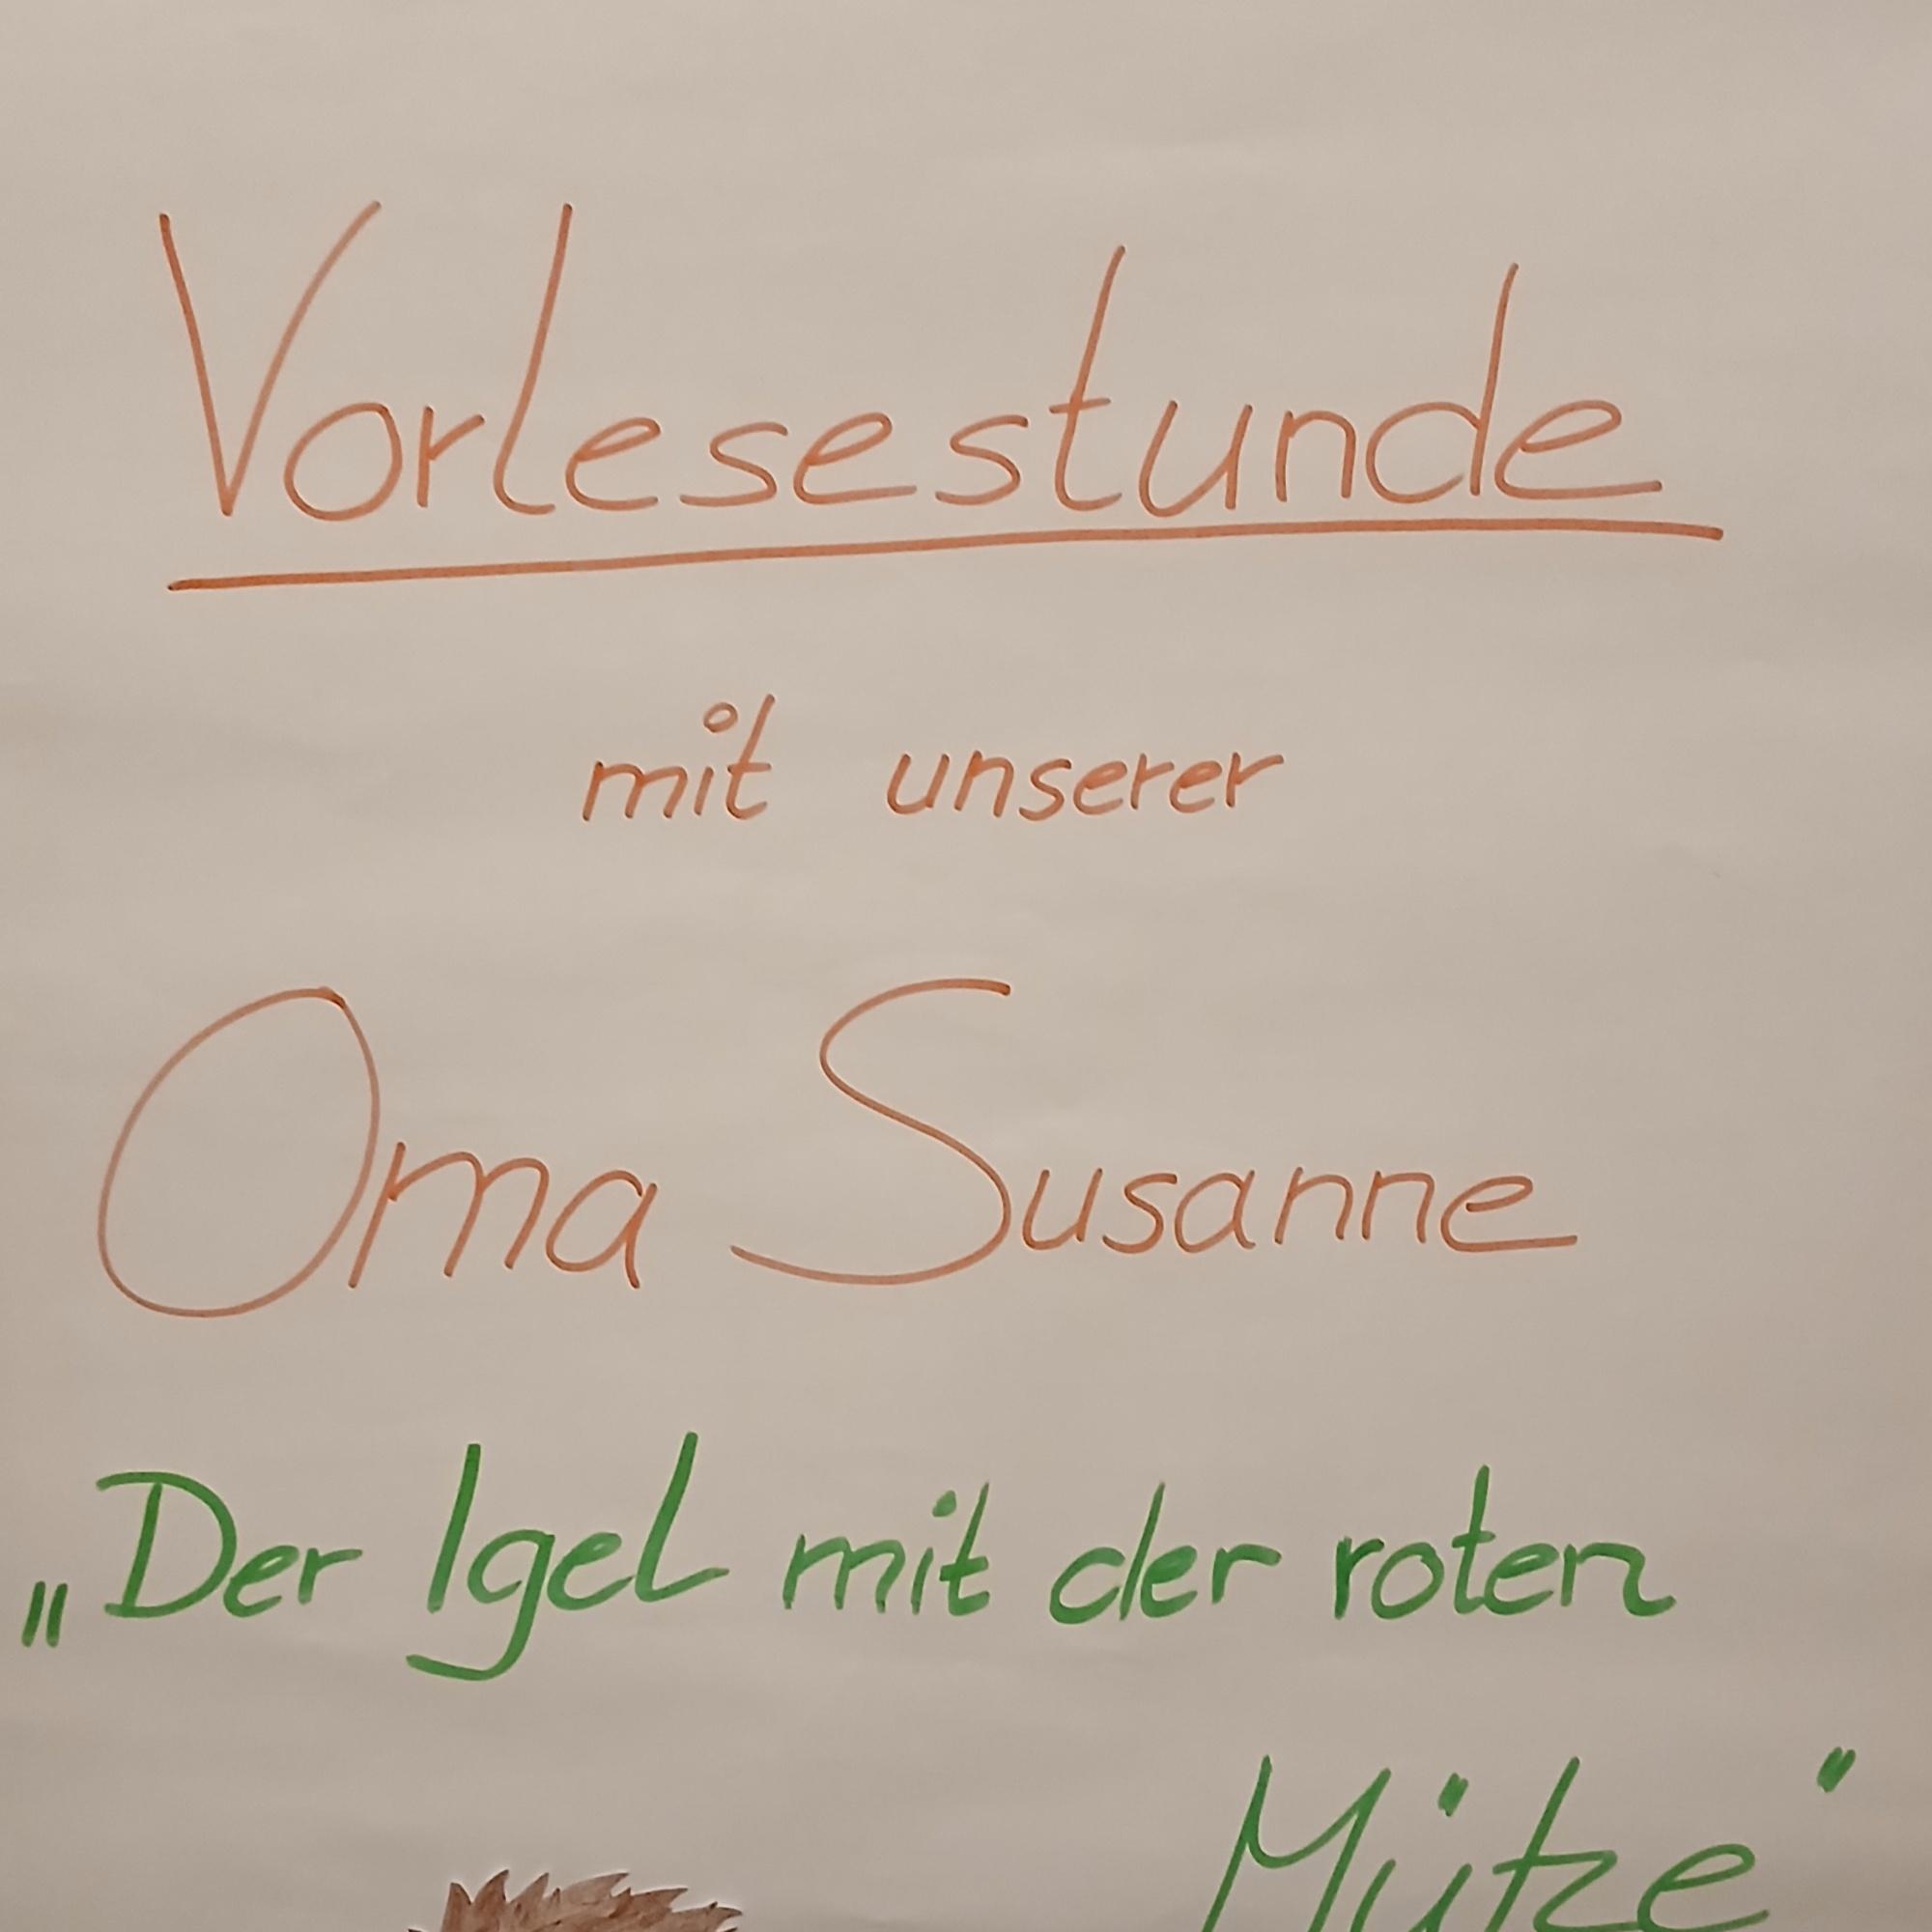 Vorlesestunde
mit unserer
Oma Susanne
„Der Igel mit der roten
Mütze"